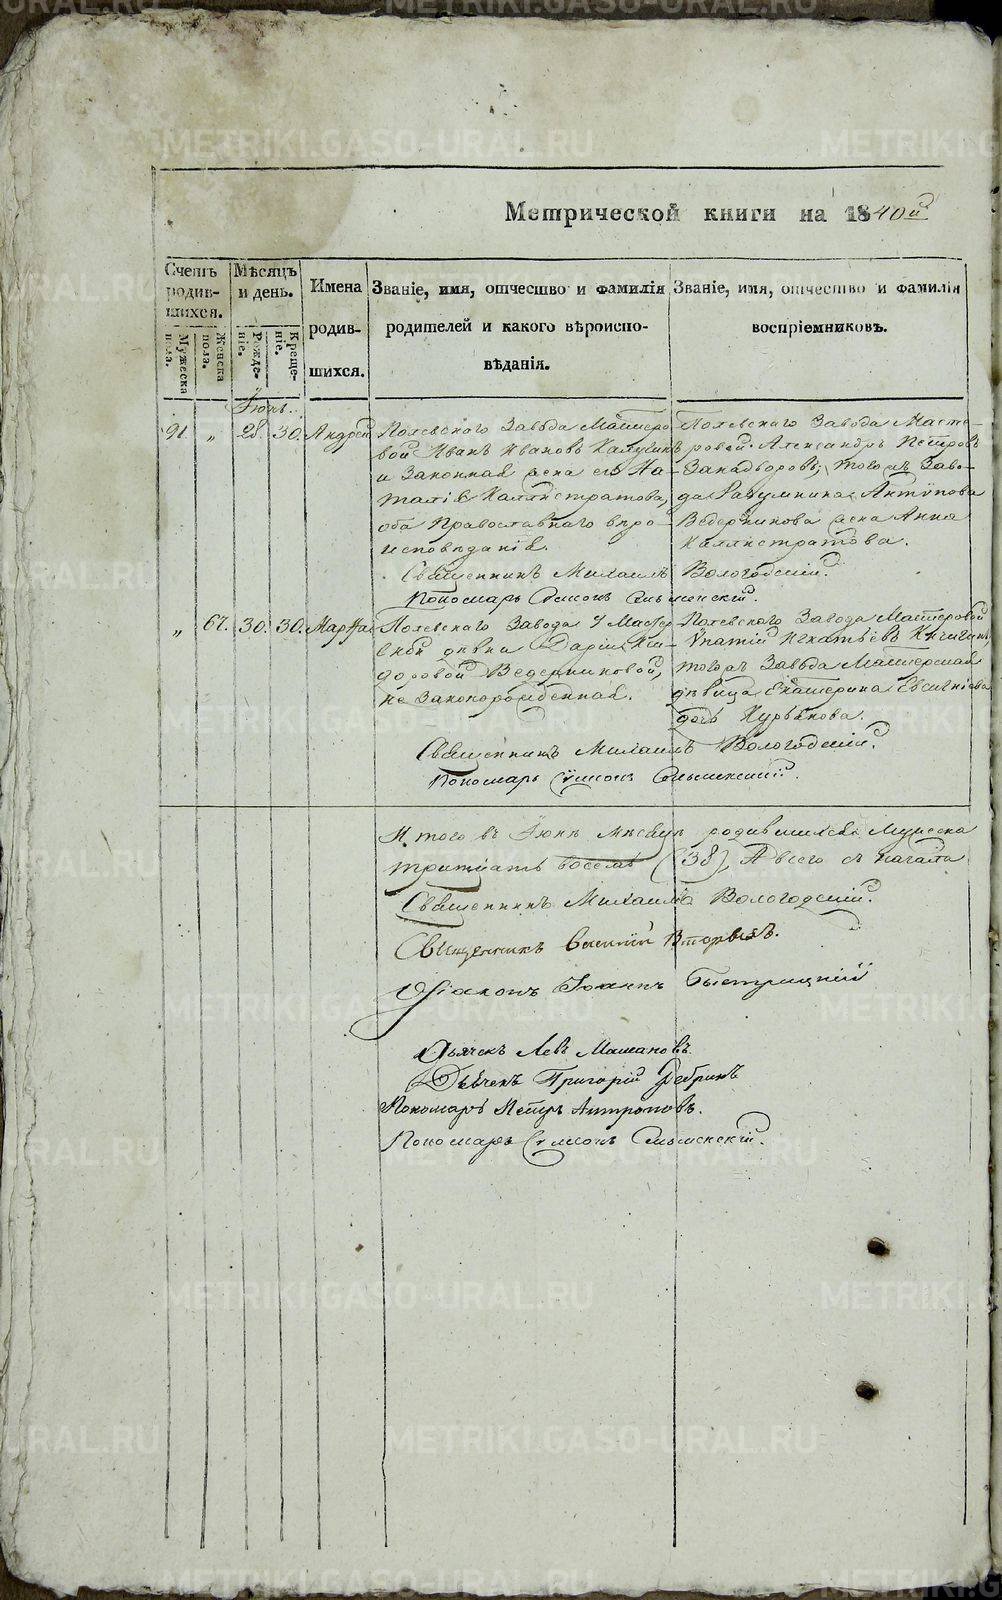 Метрической книги на 1840й
Счетъ родившихся.
Мужеска пола.
Женска пола.
Мѣсяцъ и день.
Рожденіе.
Крещеніе.
Имена родившихся.
Званіе, имя, отчество и фамилія родителей и какого вѣроисповѣданія.
Званіе, имя, отчество и фамилія воспріемниковъ.
Іюнь.
91. „ 28. 30. Андрей
Полевскаго Завода Мастеро-
вой Иванъ Ивановъ
и Законная жена его На-
талія Каллистратова,
оба Православнаго вѣро-
исповѣданія.
Полевскаго Завода Масте-
ровой Александръ Петровъ
того жъ Заво-
да Антипова
Ведерникова жена Анна
Каллистратова.
Священникъ Михаилъ Вологодскій.
Пономарь Симонъ
„ 67. 30. 30. Марѳа
Полевскаго Завода у Мастер-
ской дѣвки Даріи Иси-
доровой Ведерниковой,
не Законорожденная.
Полевскаго Завода Мастеровой
Ипатій Игнатьевъ
тогожъ Завода Мастерская
дѣвица Екатерина Евсигніева
дочь Курбанова.
Священникъ Михаилъ Вологодскій.
Пономарь Симонъ
И того въ Іюнѣ мѣсяцѣ родившихся Мужеска
тритцать восемь (38), А всего съ начала
Священникъ Михаилъ Вологодскій.
Священникъ Василій Вторыхъ.
Діаконъ Іоаннъ Быстрицкій
Дьячекъ Левъ
Дьячекъ Григорій
Пономарь Петръ Антроповъ.
Пономарь Симонъ
METRIKI.GASO-URAL.RU